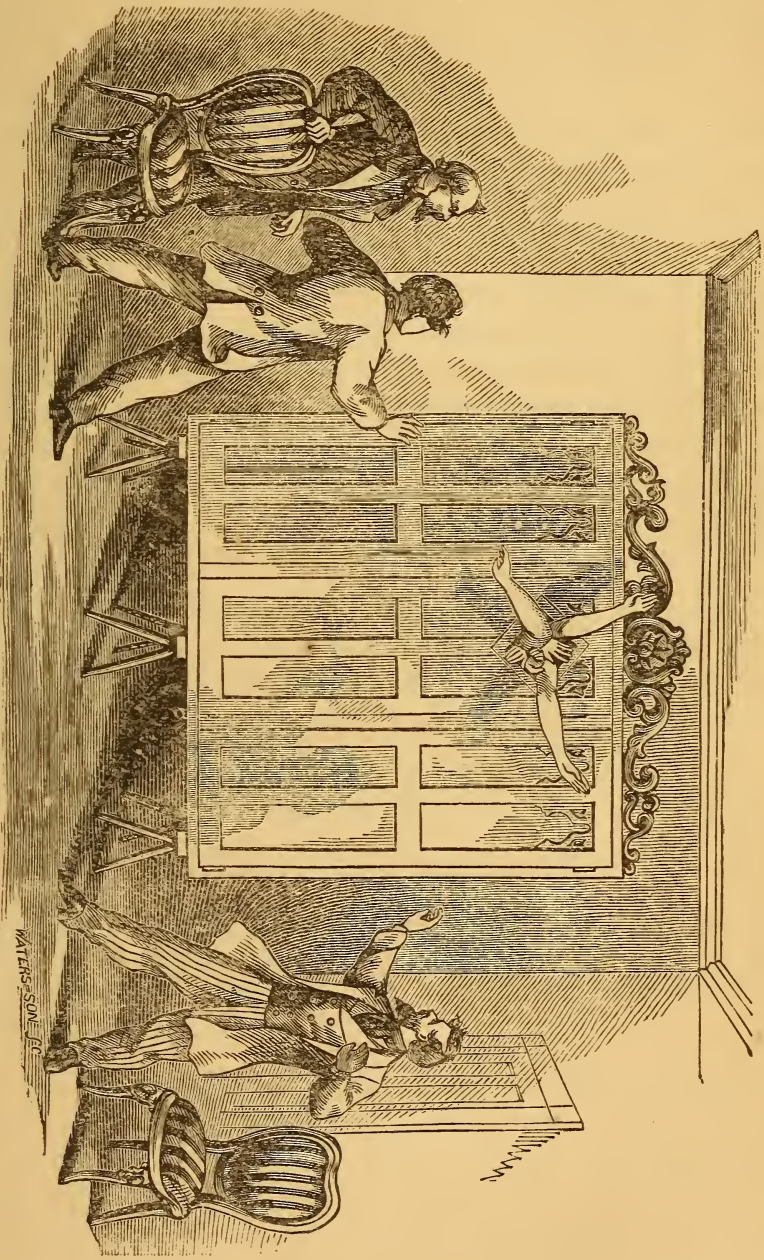 WATERS-SON. SC.